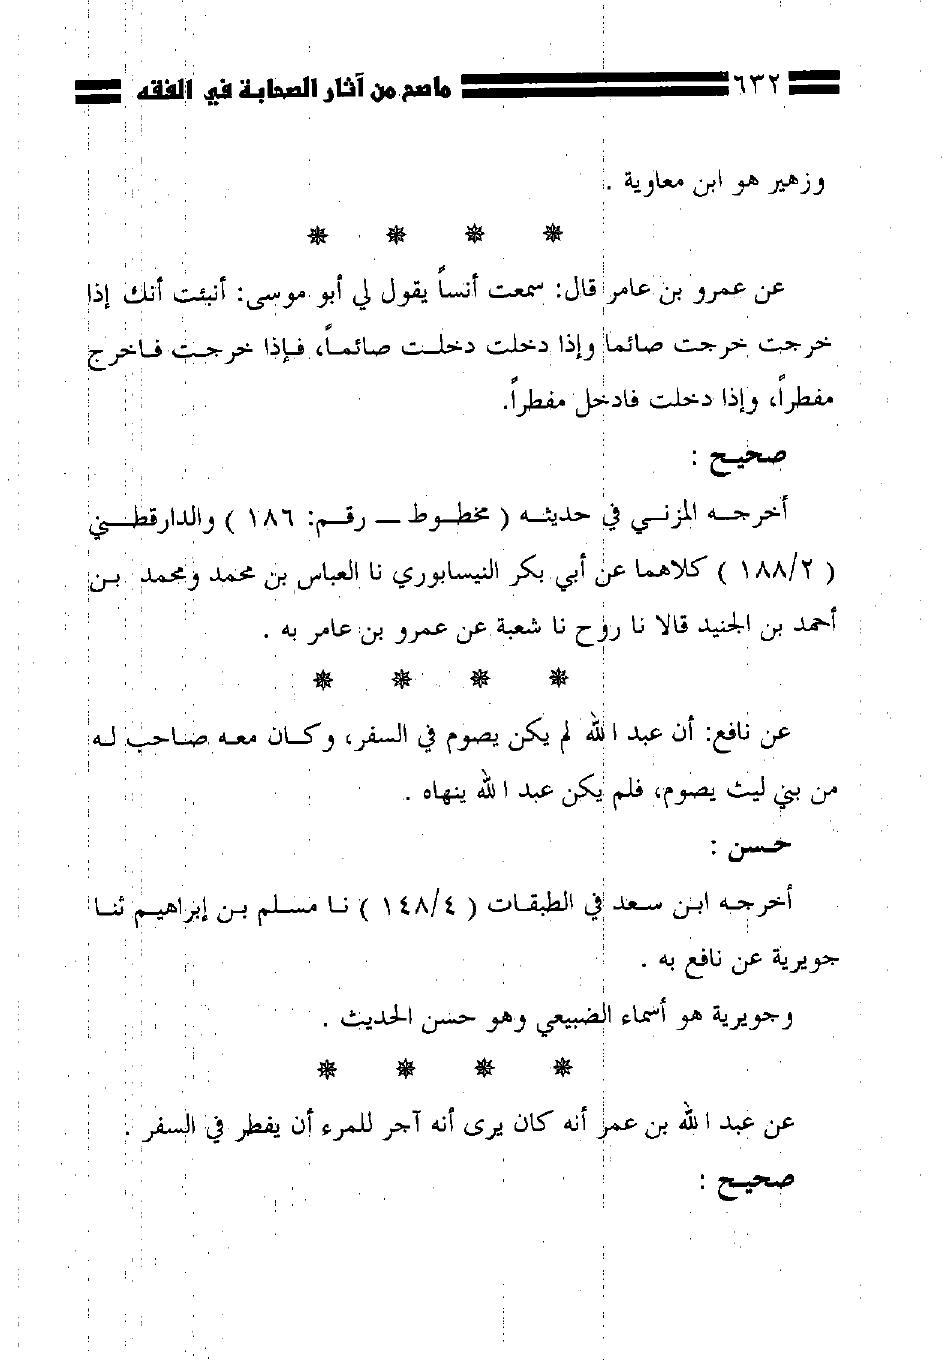 ٦٣٢ ماصح من آثار الصحابة في الفقه
وزهير هو ابن معاوية .
عن عمرو بن عامر قال: سمعت أنساً يقول لي أبو موسى: أنبئت أنك إذا
خرجت خرجت صائما وإذا دخلت دخلت صائماً، فإذا خرجت فاخرج
مفطراً، وإذا دخلت فادخل مفطراً.
صحيح :
أخرجه المزني في حديثه ( مخطوط – رقم: ١٨٦ ) والدارقطني
( ١٨٨/٢ ) كلاهما عن أبي بكر النيسابوري نا العباس بن محمد ومحمد بن
أحمد بن الجنيد قالا نا روح نا شعبة عن عمرو بن عامر به .
عن نافع: أن عبد الله لم يكن يصوم في السفر، وكان معه صاحب له
من بني ليث يصوم، فلم يكن عبد الله ينهاه .
حسن :
أخرجه ابن سعد في الطبقات ( ١٤٨/٤ ) نا مسلم بن إبراهيم ثنا
جويرية عن نافع به .
وجويرية هو أسماء الضبيعي وهو حسن الحديث .
عن عبد الله بن عمر أنه كان يرى أنه آجر للمرء أن يفطر في السفر .
صحيح :